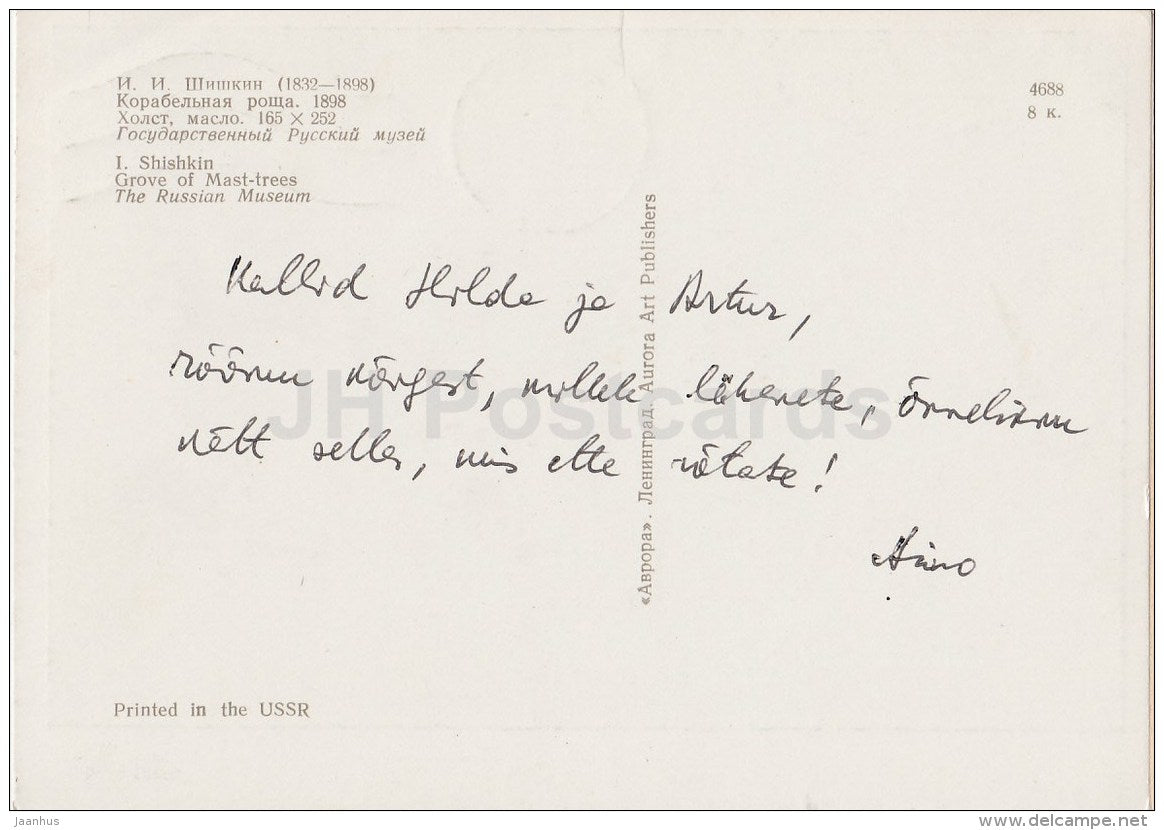 И. И. Шишкин (1832—1898)
Корабельная роща. 1898
Холст, масло. 165 × 252
Государственный Русский музей
I. Shishkin
Grove of Mast-trees
The Russian Museum
4688
8 к.
«Аврора». Ленинград. Aurora Art Publishers
Kallid Hilda ja Artur,
rõõmu kõrgest, millele lähenete, õnnelikku
kätt selles, mis ette võtate!
Aino
Printed in the USSR
JH Postcards
Jaanhus
www.delcampe.net